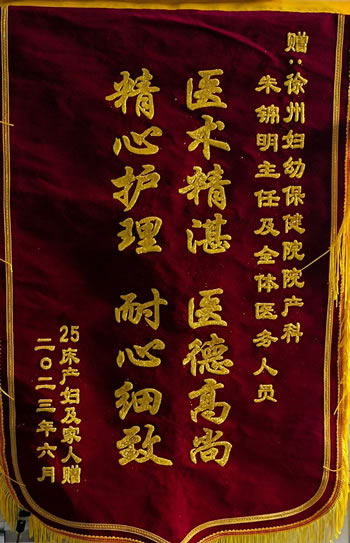 赠:徐州妇幼保健院院产科
朱锦明主任及全体医务人员
医术精湛 医德高尚
精心护理 耐心细致
25床产妇及家人赠
二〇二三年六月